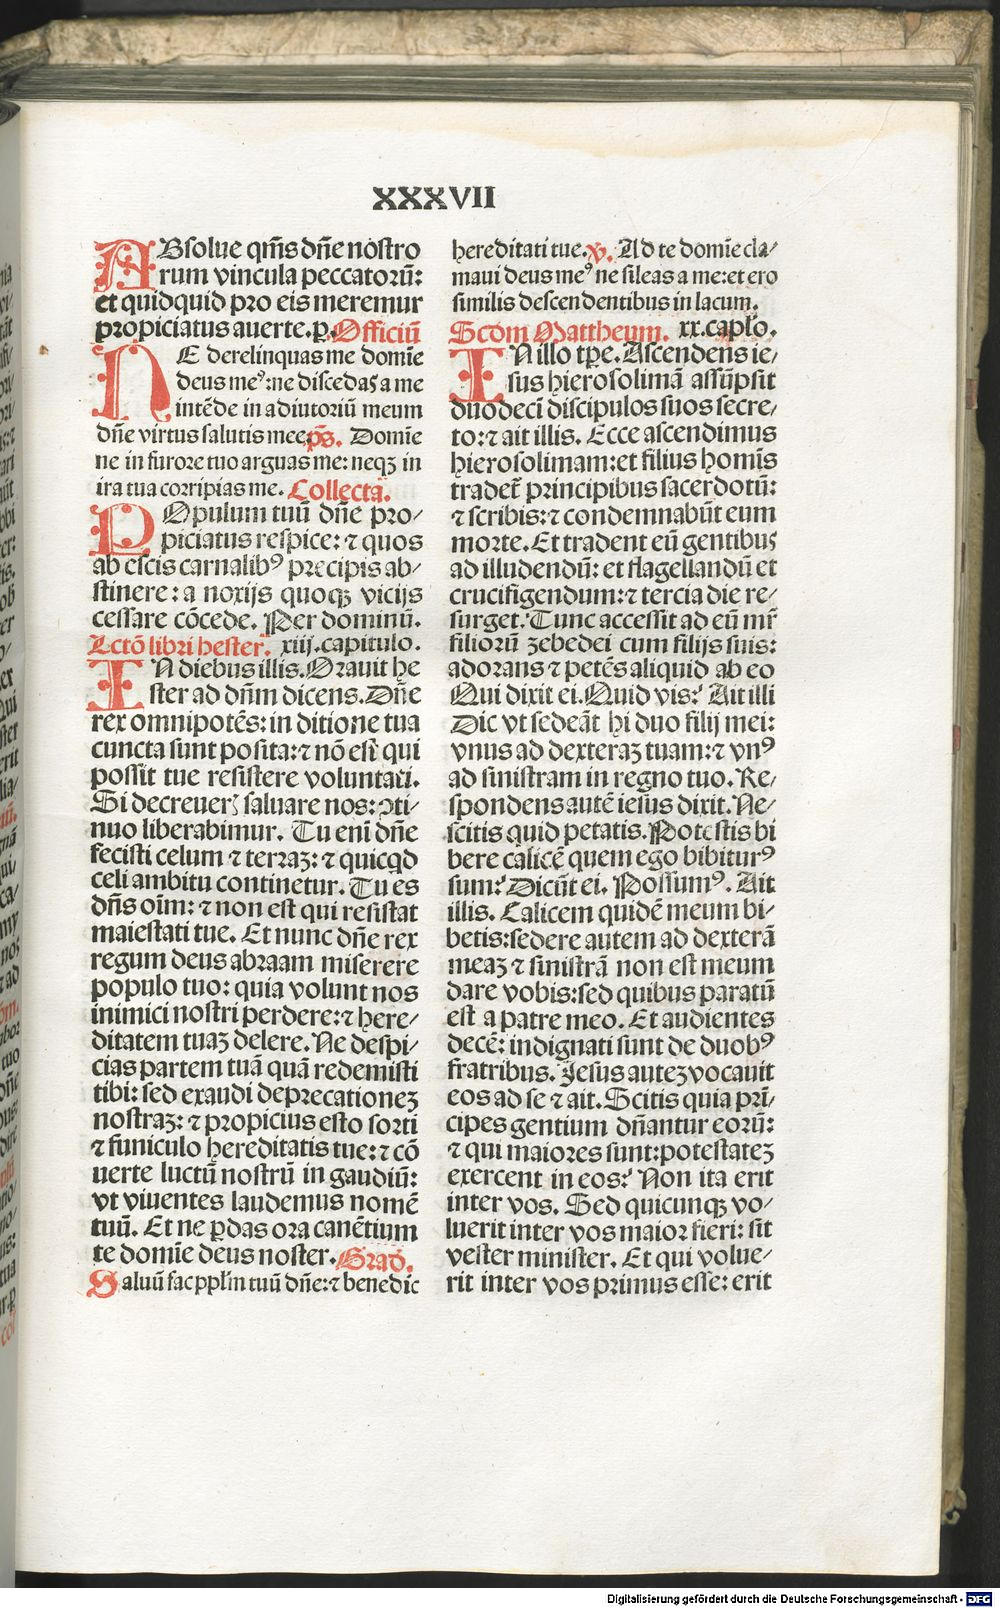 XXXVII
ABsolue qm̃s dñe nostro
rum vincula peccatorũ:
et quidquid pro eis meremur
propiciatus auerte. ꝑ. Officiũ
NE derelinquas me domĩe
deus meꝰ: ne discedas a me
intẽde in adiutoriũ meum
dñe virtus salutis mee. p̃s. Domĩe
ne in furore tuo arguas me: neqꝫ in
ira tua corripias me. Collecta.
POpulum tuũ dñe pro⸗
piciatus respice: ⁊ quos
ab escis carnalibꝰ precipis ab⸗
stinere: a noxijs quoqꝫ vicijs
cessare cõcede. Per dominũ.
Lctõ libri hester. xiij. capitulo.
IN diebus illis. Orauit he
ster ad dñm dicens. Dñe
rex omnipotẽs: in ditione tua
cuncta sunt posita: ⁊ nõ est qui
possit tue resistere voluntati.
Si decreuerꝭ saluare nos: ↄti⸗
nuo liberabimur. Tu enĩ dñe
fecisti celum ⁊ terraꝫ: ⁊ quicqd
celi ambitu continetur. Tu es
dñs oĩm: ⁊ non est qui resistat
maiestati tue. Et nunc dñe rex
regum deus abraam miserere
populo tuo: quia volunt nos
inimici nostri perdere: ⁊ here⸗
ditatem tuaꝫ delere. Ne despi⸗
cias partem tuã quã redemisti
tibi: sed exaudi deprecationeꝫ
nostraꝫ: ⁊ propicius esto sorti
⁊ funiculo hereditatis tue: ⁊ cõ
uerte luctũ nostrũ in gaudiũ:
vt viuentes laudemus nomẽ
tuũ. Et ne ꝑdas ora canẽtium
te domĩe deus noster. Grad̃.
Saluũ fac pplm̃ tuũ dñe: ⁊ benedic
hereditati tue. ℣. Ad te domĩe cla⸗
maui deus meꝰ ne sileas a me: et ero
similis descendentibus in lacum.
Scd̃m Mattheum. xx. capl̃o.
IN illo tp̃e. Ascendens ie⸗
sus hierosolimã assũpsit
duodecĩ discipulos suos secre⸗
to: ⁊ ait illis. Ecce ascendimus
hierosolimam: et filius homĩs
tradet̃ principibus sacerdotũ:
⁊ scribis: ⁊ condemnabũt eum
morte. Et tradent eũ gentibus
ad illudendũ: et flagellandũ et
crucifigendum: ⁊ tercia die re⸗
surget. Tunc accessit ad eũ mr̃
filiorũ zebedei cum filijs suis:
adorans ⁊ petẽs aliquid ab eo
Qui dixit ei. Quid vis? Ait illi
Dic vt sedeãt hi duo filij mei:
vnus ad dexteraꝫ tuam: ⁊ vnꝰ
ad sinistram in regno tuo. Re⸗
spondens autẽ iesus dixit. Ne⸗
scitis quid petatis. Potestis bi
bere calicẽ quem ego bibiturꝰ
sum? Dicũt ei. Possumꝰ. Ait
illis. Calicem quidẽ meum bi⸗
betis: sedere autem ad dexterã
meaꝫ ⁊ sinistrã non est meum
dare vobis: sed quibus paratũ
est a patre meo. Et audientes
decẽ: indignati sunt de duobꝰ
fratribus. Jesus auteꝫ vocauit
eos ad se ⁊ ait. Scitis quia prĩ⸗
cipes gentium dñantur eorũ:
⁊ qui maiores sunt: potestateꝫ
exercent in eos? Non ita erit
inter vos. Sed quicunqꝫ vo⸗
luerit inter vos maior fieri: sit
vester minister. Et qui volue⸗
rit inter vos primus esse: erit
Digitalisierung gefördert durch die Deutsche Forschungsgemeinschaft - DFG